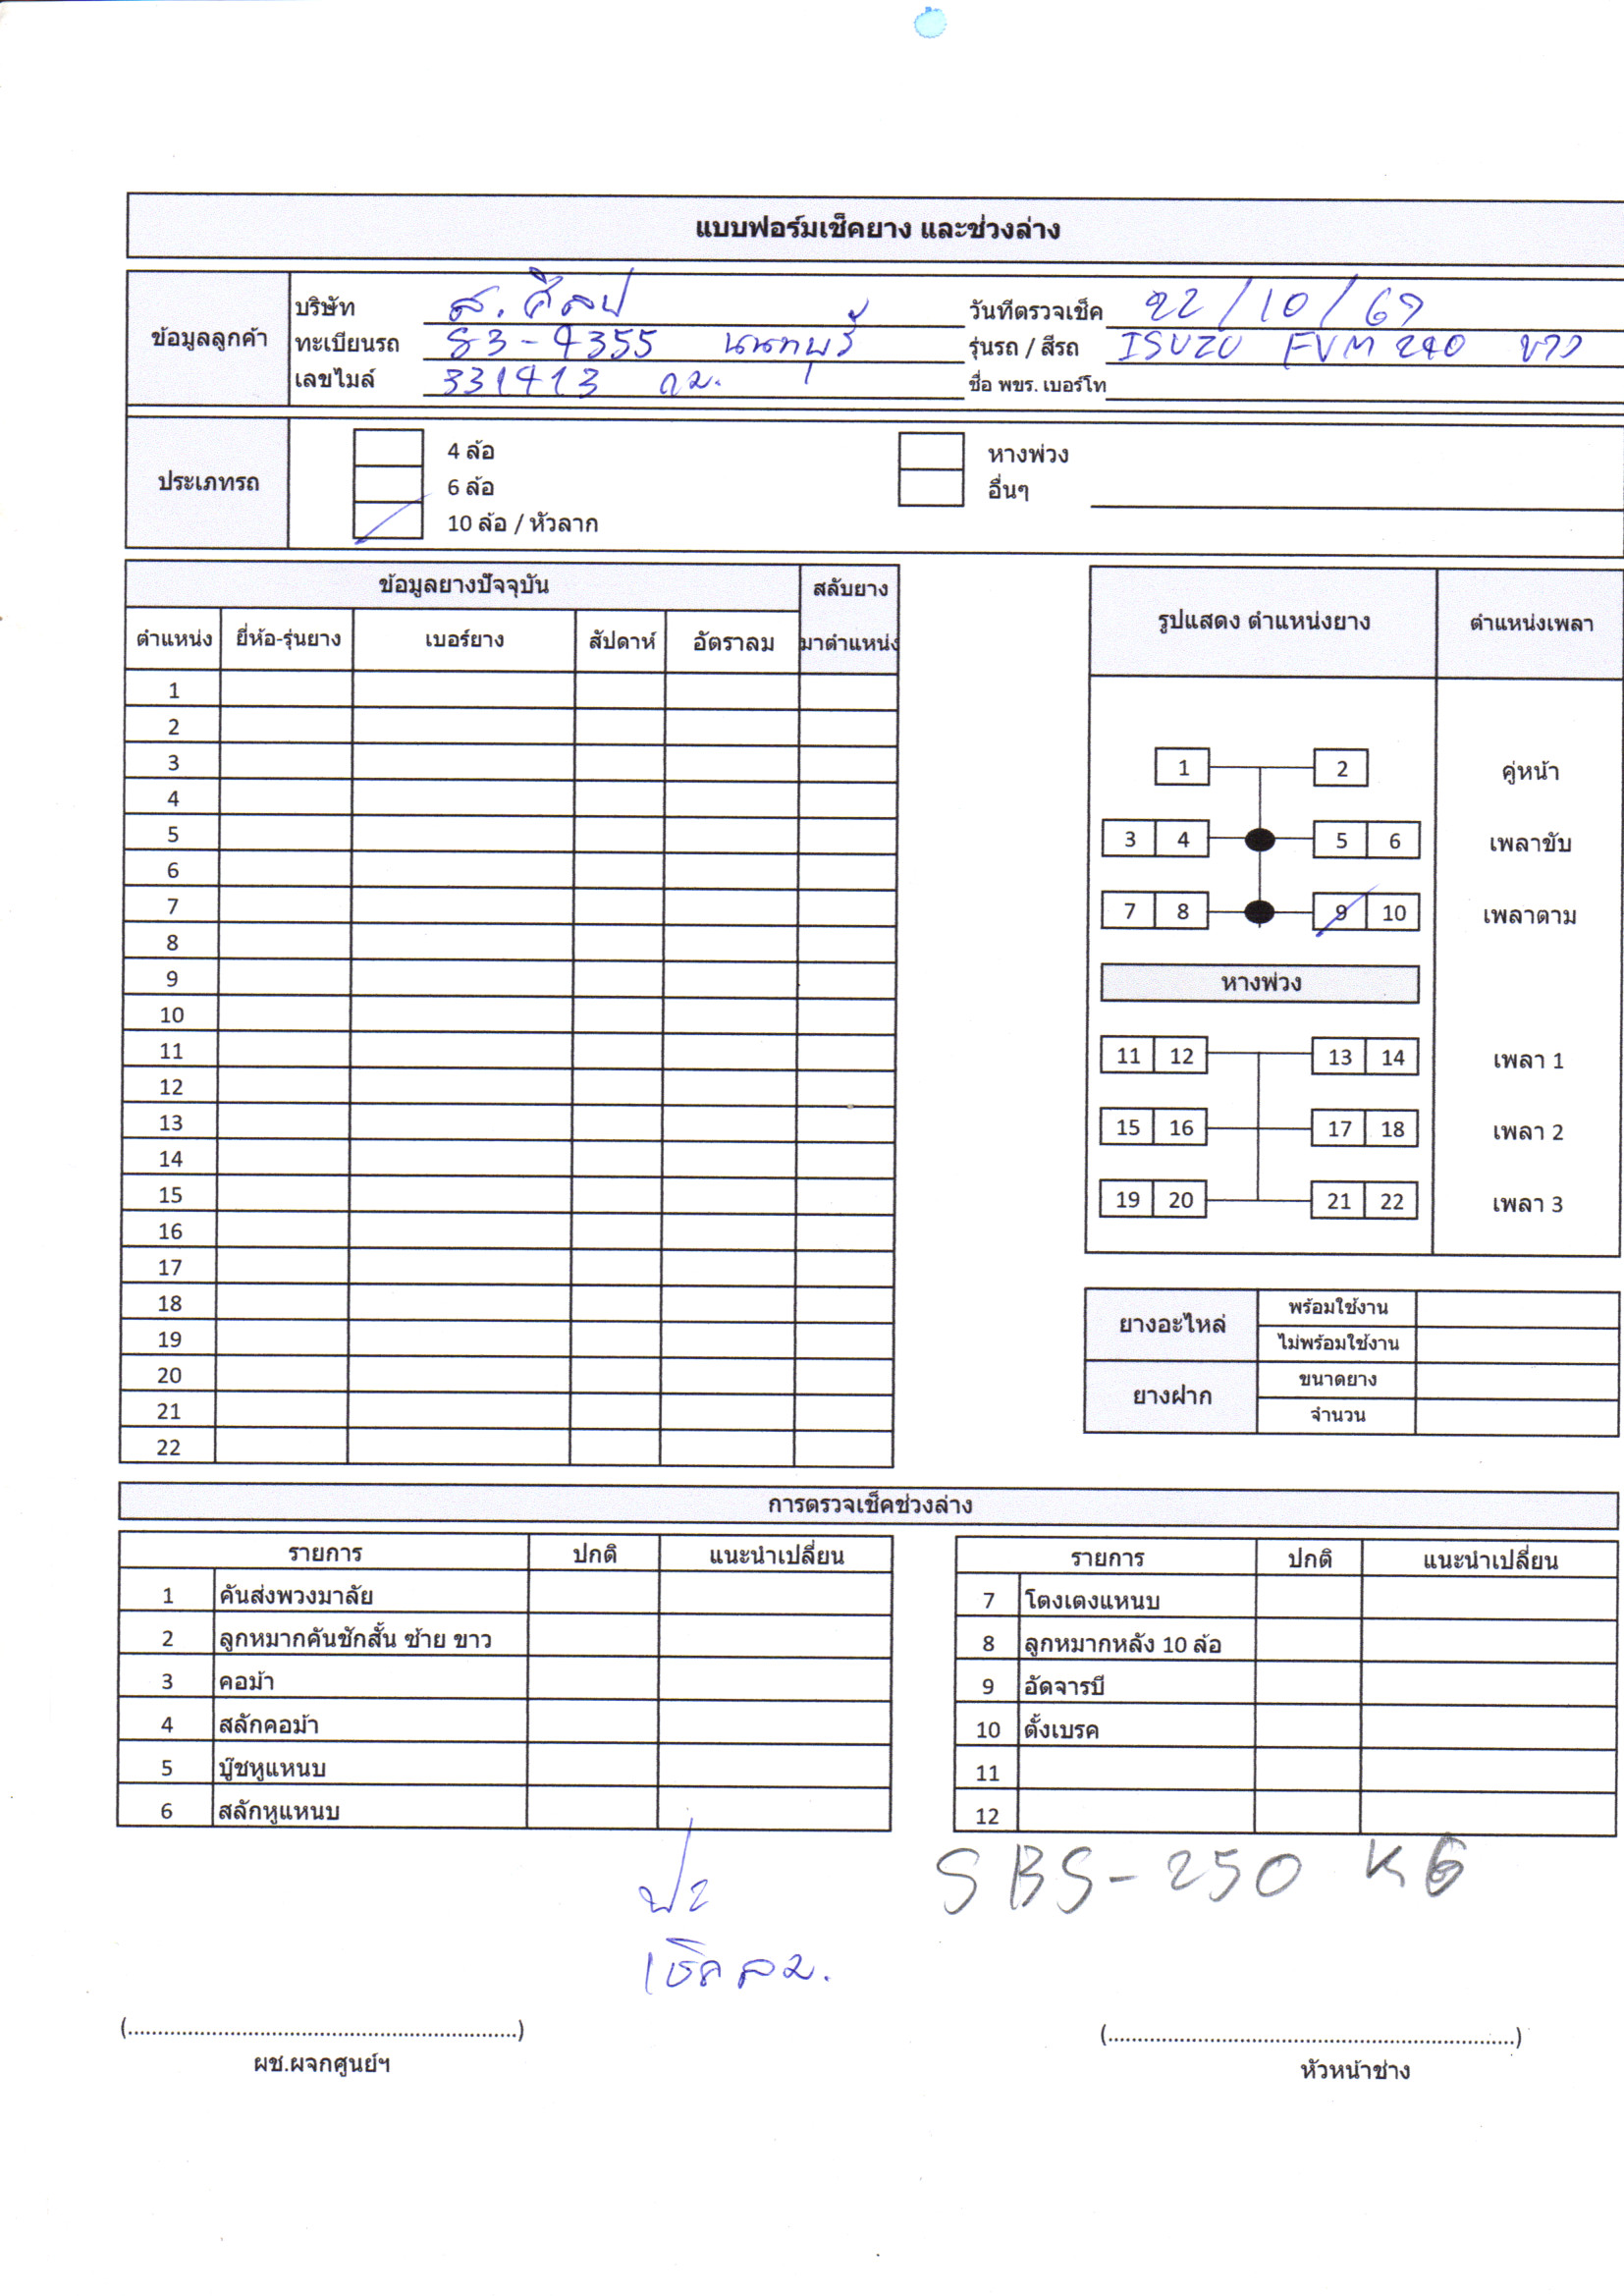 แบบฟอร์มเช็คยาง และช่วงล่าง
ข้อมูลลูกค้า
บริษัท ส. ศิลป วันที่ตรวจเช็ค 22/10/67
ทะเบียนรถ 83-4355 นนทบุรี รุ่นรถ / สีรถ ISUZU FVM 240 ขาว
เลขไมล์ 331413 กม. ชื่อ พขร. เบอร์โท
ประเภทรถ
4 ล้อ หางพ่วง
6 ล้อ อื่นๆ
10 ล้อ / หัวลาก
ข้อมูลยางปัจจุบัน สลับยาง
ตำแหน่ง ยี่ห้อ-รุ่นยาง เบอร์ยาง สัปดาห์ อัตราลม มาตำแหน่ง
1
2
3
4
5
6
7
8
9
10
11
12
13
14
15
16
17
18
19
20
21
22
รูปแสดง ตำแหน่งยาง ตำแหน่งเพลา
1 2 คู่หน้า
3 4 5 6 เพลาขับ
7 8 9 10 เพลาตาม
หางพ่วง
11 12 13 14 เพลา 1
15 16 17 18 เพลา 2
19 20 21 22 เพลา 3
ยางอะไหล่ พร้อมใช้งาน
ไม่พร้อมใช้งาน
ยางฝาก ขนาดยาง
จำนวน
การตรวจเช็คช่วงล่าง
รายการ ปกติ แนะนำเปลี่ยน
1 คันส่งพวงมาลัย
2 ลูกหมากคันชักสั้น ซ้าย ขาว
3 คอม้า
4 สลักคอม้า
5 บู๊ชหูแหนบ
6 สลักหูแหนบ
รายการ ปกติ แนะนำเปลี่ยน
7 โตงเตงแหนบ
8 ลูกหมากหลัง 10 ล้อ
9 อัดจารบี
10 ตั้งเบรค
11
12
ปะ
เช็คลม.
SBS-250 KG
(................................................................)
ผช.ผจกศูนย์ฯ
(...................................................................)
หัวหน้าช่าง